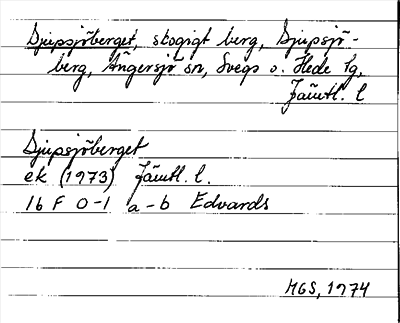 Djupsjöberget, skogigt berg, Djupsjö-
berg, Ängersjö sn, Svegs o. Hede tg,
Jämtl. l
Djupsjöberget
ek (1973) Jämtl. l.
16 F 0-1 a-b Edvards
MGS, 1974